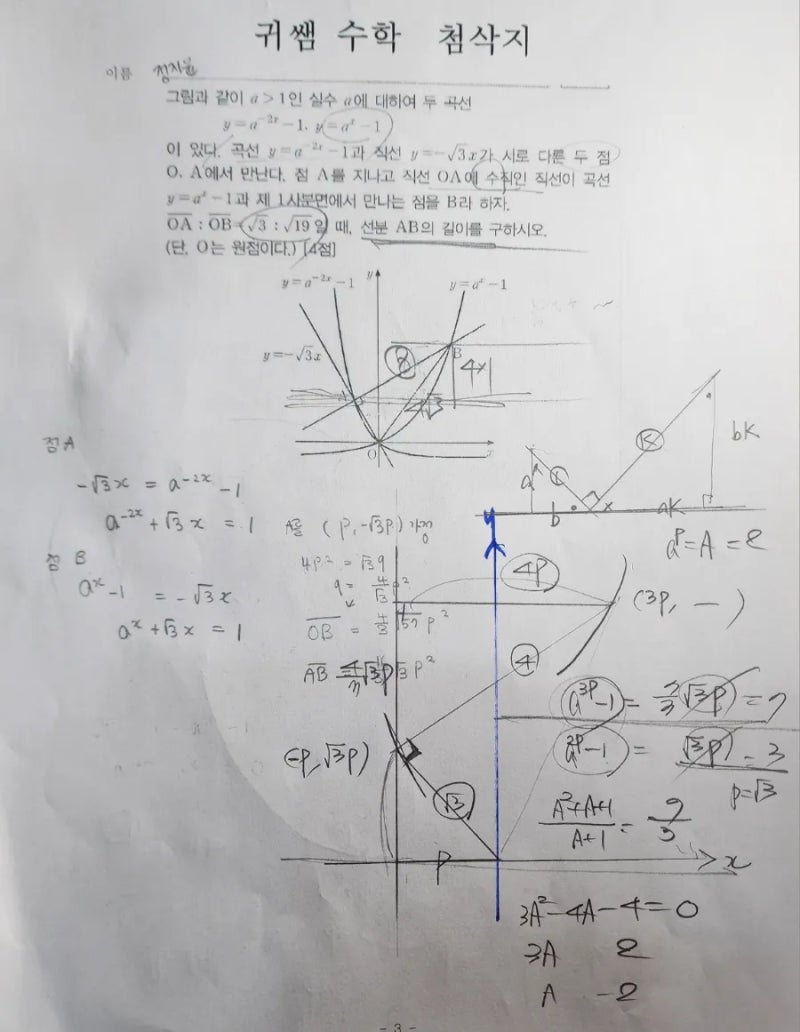 귀쌤 수학 첨삭지
이름
그림과 같이 a > 1인 실수 a에 대하여 두 곡선
y = a^{-2x} - 1, y = a^x - 1
이 있다. 곡선 y = a^{-2x} - 1과 직선 y = -√3x가 서로 다른 두 점
O, A에서 만난다. 점 A를 지나고 직선 OA에 수직인 직선이 곡선
y = a^x - 1과 제 1사분면에서 만나는 점을 B라 하자.
OA : OB = √3 : √19일 때, 선분 AB의 길이를 구하시오.
(단, O는 원점이다.) [4점]
y = a^{-2x} - 1
y
y = a^x - 1
y = -√3x
B
4x
4√3
O
x
점A
-√3x = a^{-2x} - 1
a^{-2x} + √3x = 1
점 B
a^x - 1 = -√3x
a^x + √3x = 1
A를 (P, -√3P) 가정
4P² = √3q
q = 4/√3 P²
OB =
AB
a
b
x
aK
bK
K
a^P = A = 2
4P
(3P, — )
4
a^{3P} - 1 = 7/3 √3P) = 7
a^{2P} - 1 = √3P) = 3
P = √3
(-P, √3P)
√3
P
x
A² + A + 1 / A + 1 = 7/3
3A² - 4A - 4 = 0
3A 2
A -2
- 3 -